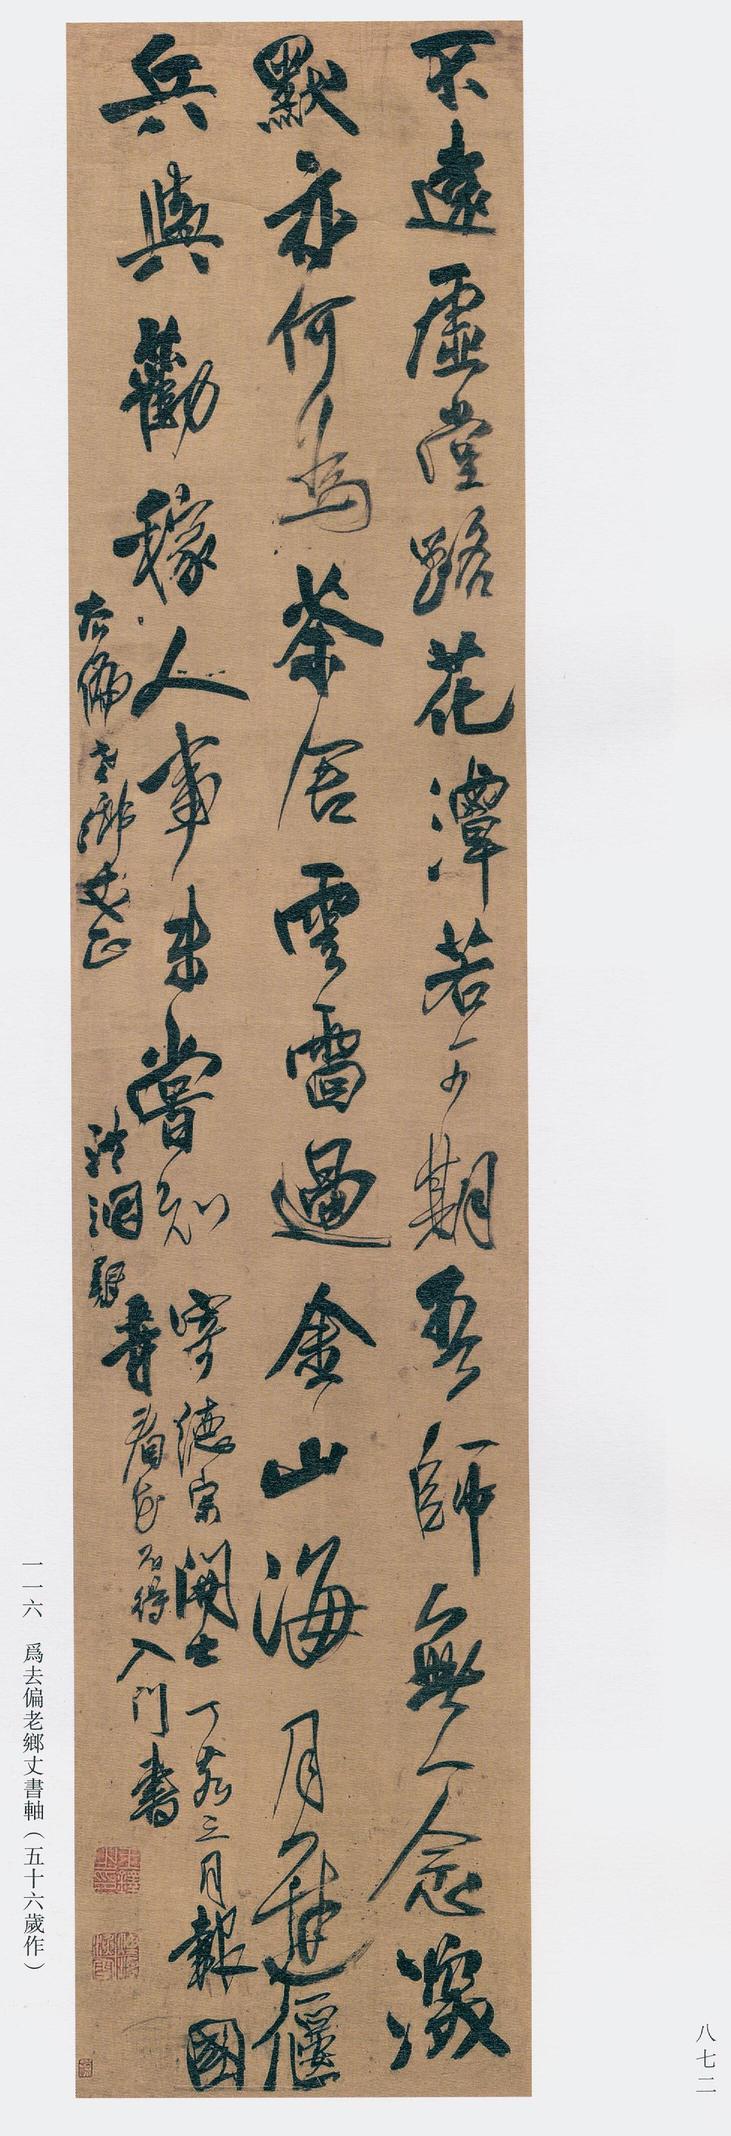 不遠虛堂路花潭若可期吾師無一念深
默亦何為茶舍雲雷過金山海月遲偃
兵與勸稼人事未嘗知
寄德宗開士丁亥三月報國
寺看花不得入門書
去偏老鄉丈正
王鐸
一一六 爲去偏老鄉丈書軸（五十六歲作）
八七二